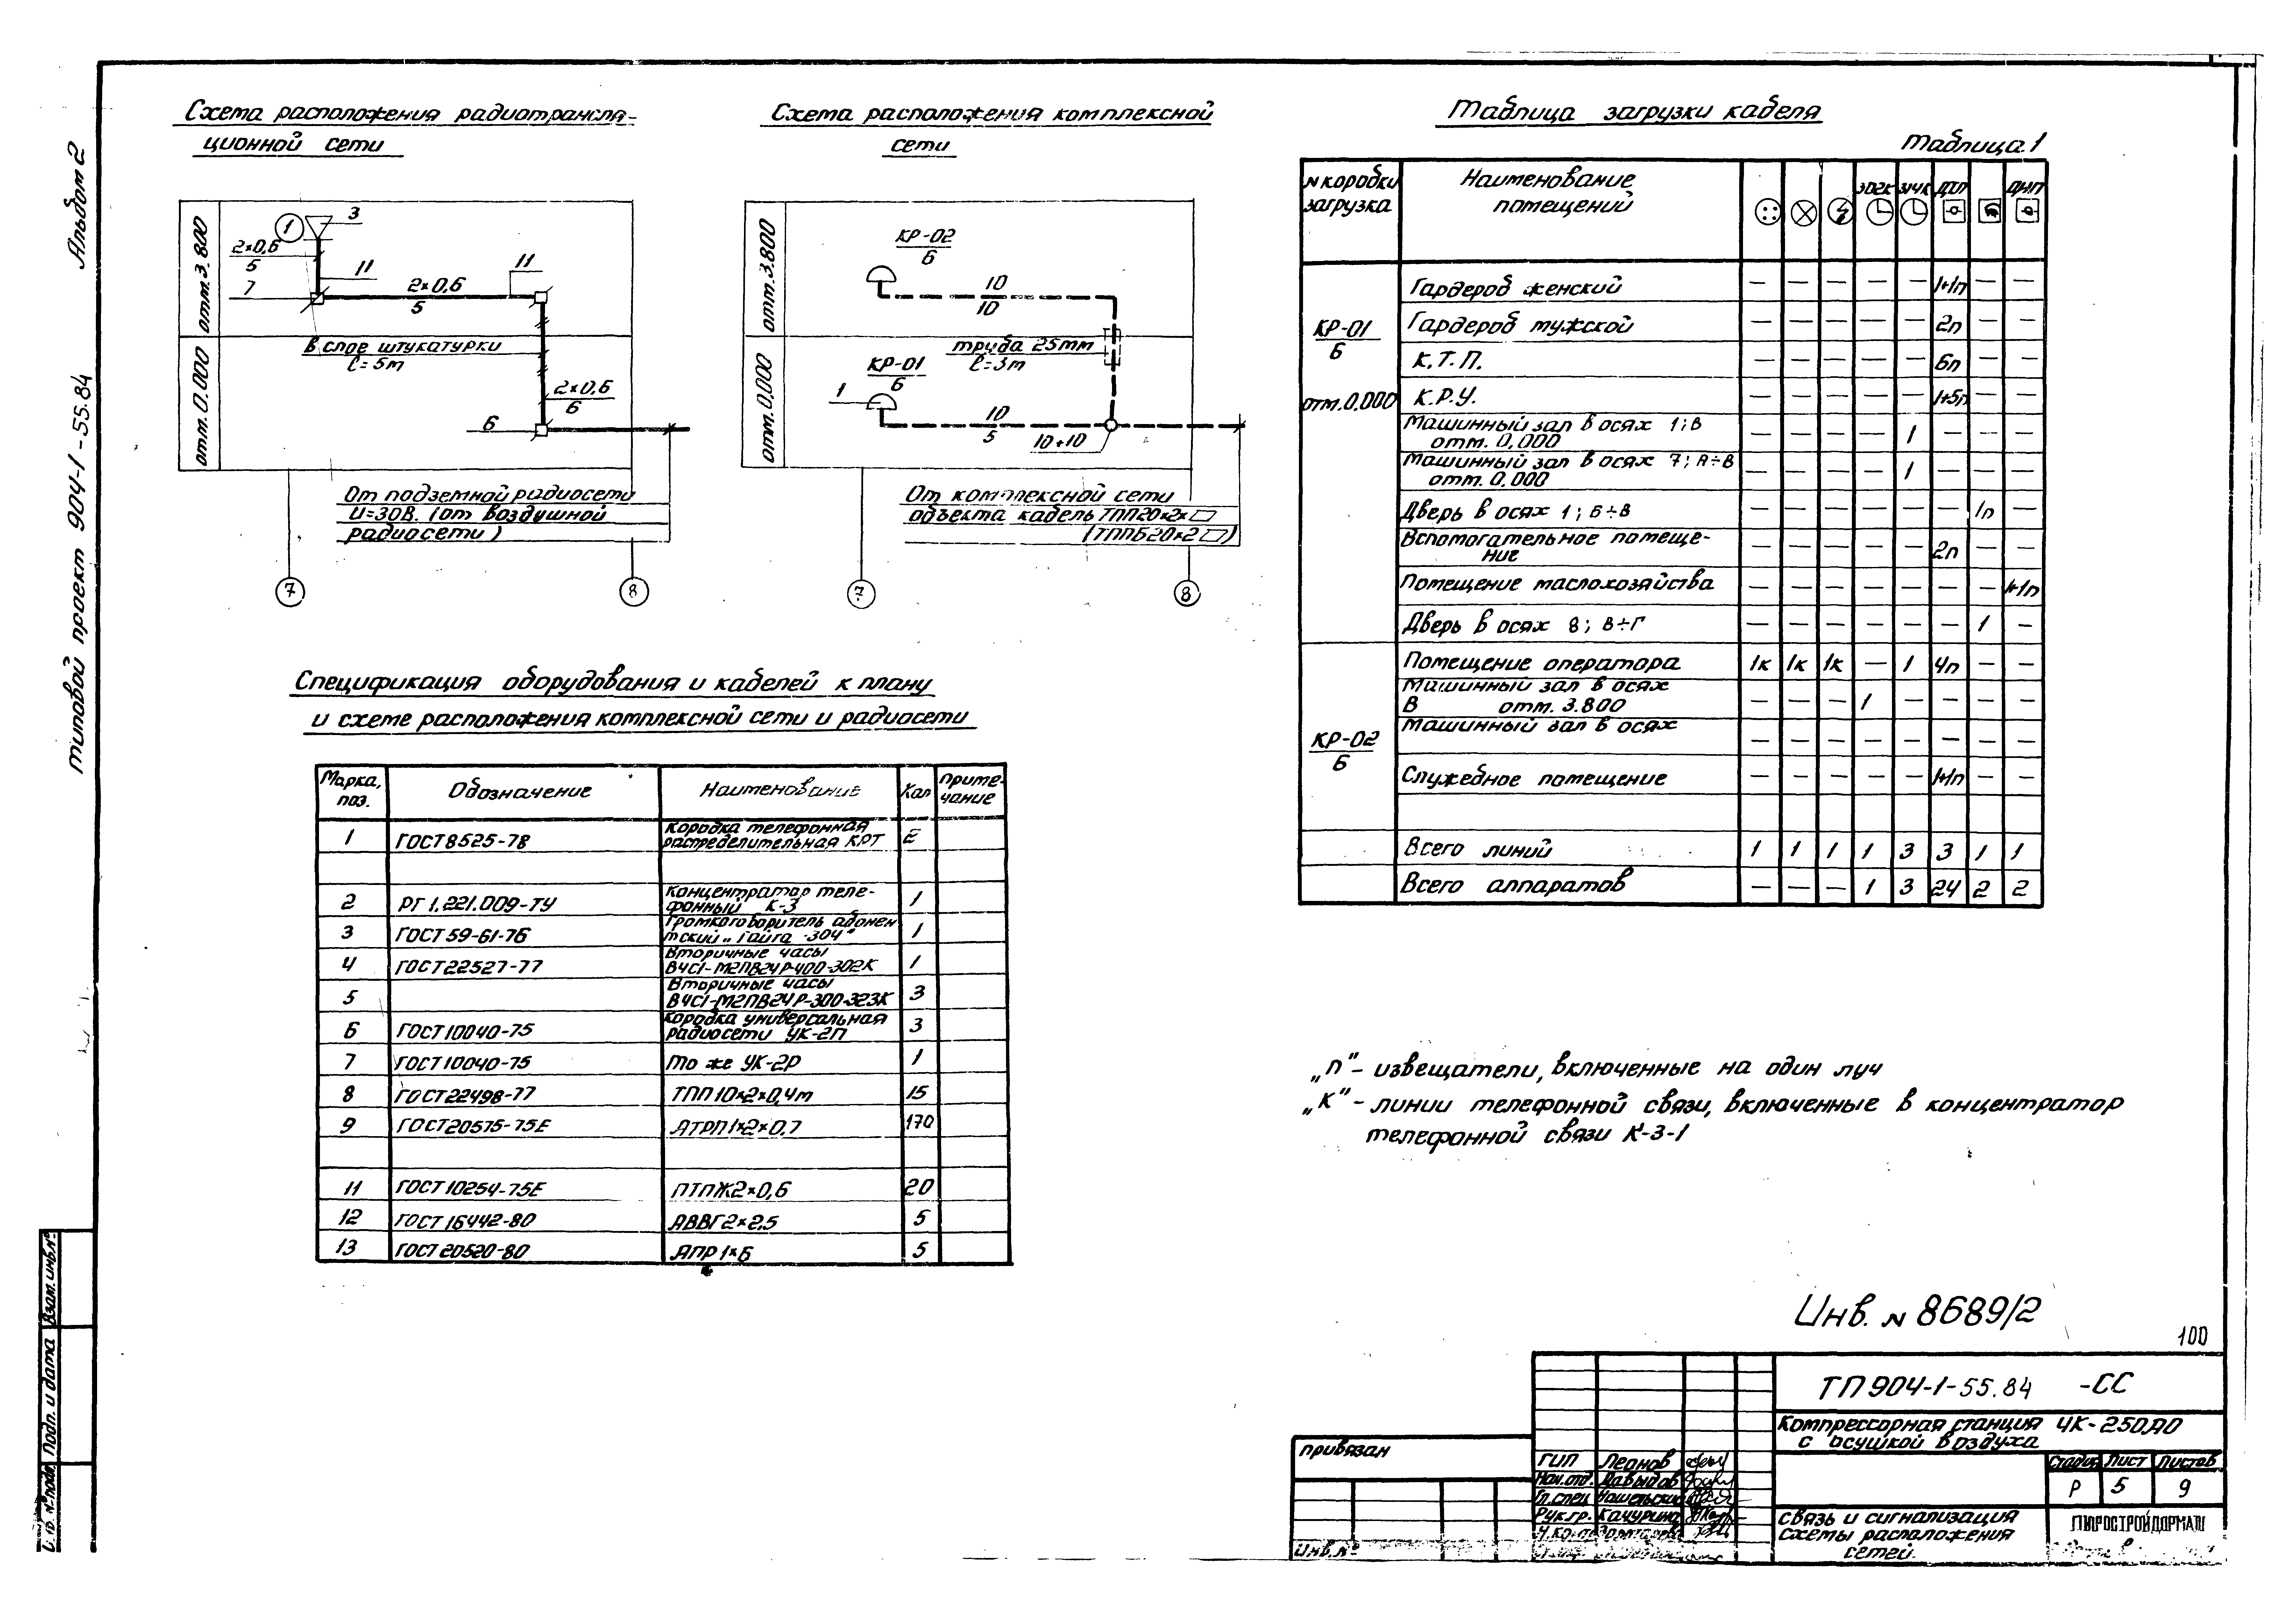 Альбом 2
типовой проект 904-1-55.84
Схема расположения радиотрансля-
ционной сети
отм. 3.800
отм. 0.000
1
3
2×0,6
5
11
7
2×0,6
5
11
В слое штукатурки
ℓ=5м
2×0,6
6
6
От подземной радиосети
U=30В. (от воздушной
радиосети)
7
8
Схема расположения комплексной
сети
отм. 3.800
отм. 0,000
КР-02
6
10
10
труба 25мм
ℓ=3м
КР-01
6
1
10
5
10+10
От комплексной сети
объекта кабель ТПП20×2×▱
(ТППБ20×2▱)
7
8
Таблица загрузки кабеля
Таблица 1
N коробки загрузка | Наименование помещений | ЭВГК | ЭЧЧК | ДТЛ | ДИП
КР-01
6
отм. 0.000
Гардероб женский — — — — — 1+1п — —
Гардероб мужской — — — — — 2п — —
К.Т.П. — — — — — 6п — —
К.Р.У. — — — — — 1+5п — —
Машинный зал в осях 1; В
отм. 0.000 — — — — 1 — — —
Машинный зал в осях 7; А÷В
отм. 0.000 — — — — 1 — — —
Дверь в осях 1; Б÷В — — — — — — 1п —
Вспомогательное помеще-
ние — — — — — 2п — —
Помещение маслохозяйства — — — — — — — 1+1п
Дверь в осях 8; В÷Г — — — — — — 1 —
КР-02
6
Помещение оператора 1к 1к 1к — 1 4п — —
Машинный зал в осях
В отм. 3.800 — — — 1 — — — —
Машинный зал в осях — — — — — — — —
Служебное помещение — — — — — 1+1п — —
Всего линий 1 1 1 1 3 3 1 1
Всего аппаратов — — — 1 3 24 2 2
Спецификация оборудования и кабелей к плану
и схеме расположения комплексной сети и радиосети
Марка, поз. | Обозначение | Наименование | Кол | Приме-чание
1 ГОСТ 8525-78 Коробка телефонная
распределительная КРТ 2
2 РГ 1.221.009-ТУ Концентратор теле-
фонный К-3 1
3 ГОСТ 59-61-76 Громкоговоритель абонен
тский „Тайга-304" 1
4 ГОСТ 22527-77 Вторичные часы
ВЧС1-М2ПВ24Р-400-302К 1
5 Вторичные часы
ВЧС1-М2ПВ24Р-300-323К 3
6 ГОСТ 10040-75 Коробка универсальная
радиосети УК-2П 3
7 ГОСТ 10040-75 То же УК-2Р 1
8 ГОСТ 22498-77 ТПП 10×2×0,4м 15
9 ГОСТ 20575-75Е АТРП 1×2×0,7 170
11 ГОСТ 10254-75Е ПТПЖ 2×0,6 20
12 ГОСТ 16442-80 АВВГ 2×2,5 5
13 ГОСТ 20520-80 АПР 1×6 5
„п"- извещатели, включенные на один луч
„К"- линии телефонной связи, включенные в концентратор
телефонной связи К-3-1
Инв. N 8689/2
100
Взам. инв. N
Подп. и дата
N подл
привязан
Инв. N
ГИП Леонов
Нач. отд. Давыдов
Гл. спец
Рук. гр. Качурина
ТП 904-1-55.84 -СС
Компрессорная станция 4К-250АО
с осушкой воздуха
Стадия Лист Листов
Р 5 9
связь и сигнализация
схемы расположения
сетей.
ГИПРОСТРОЙДОРМАШ